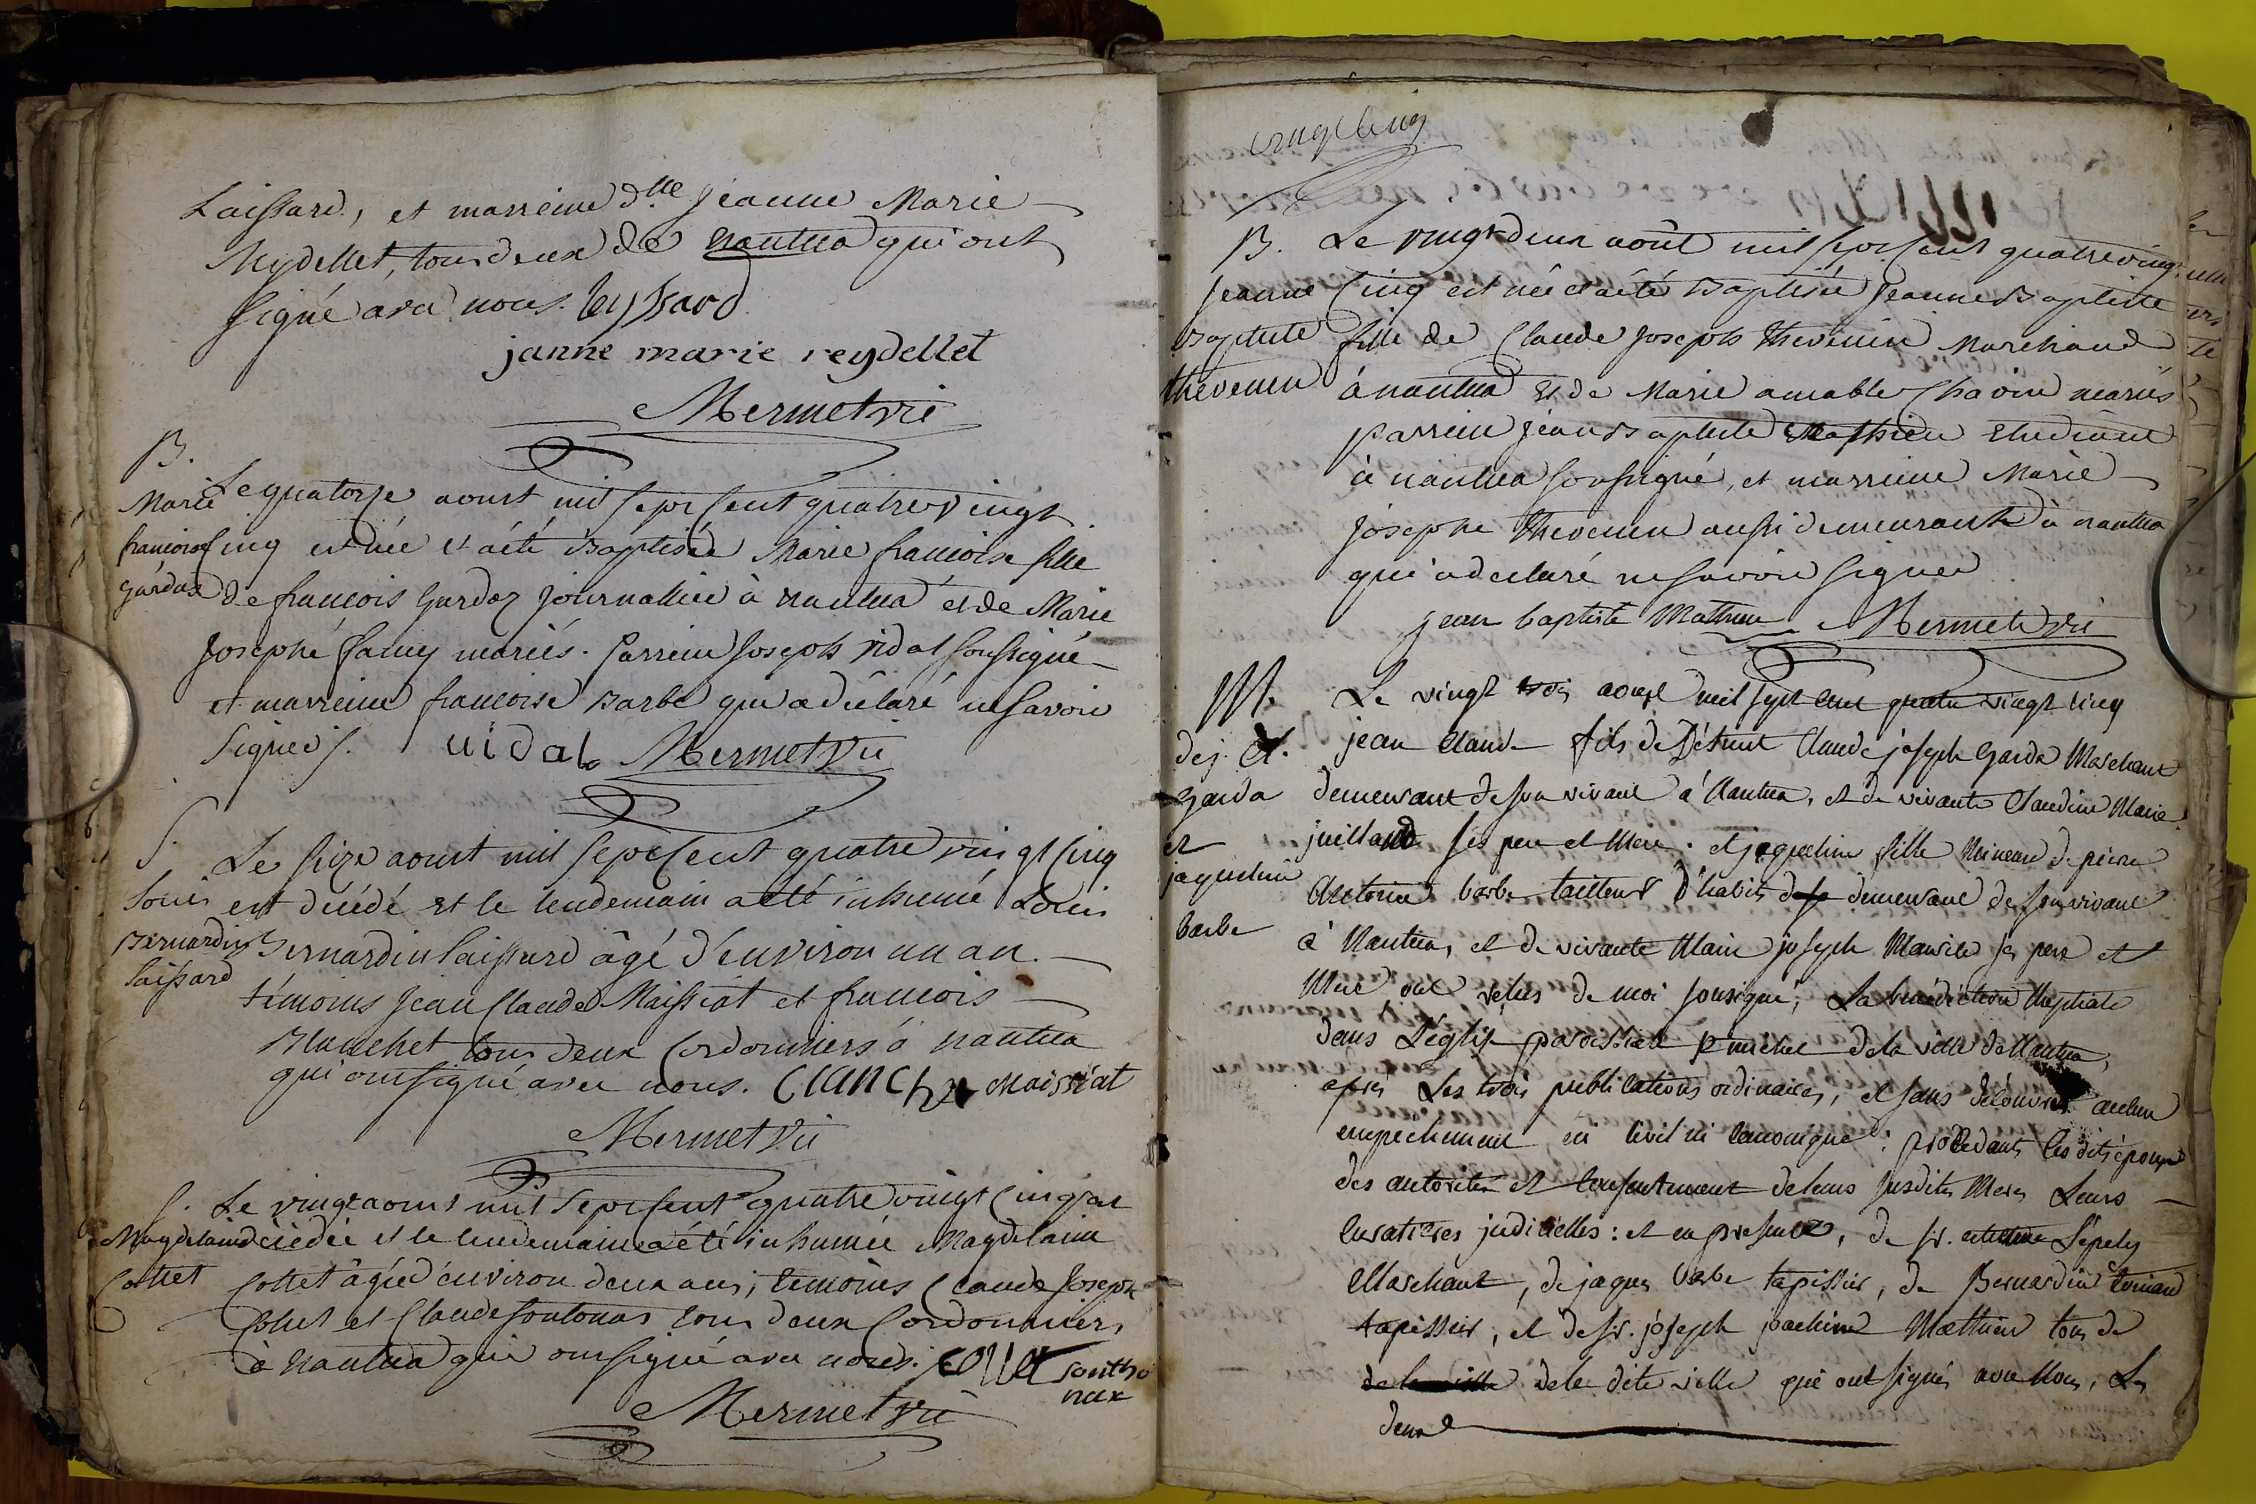 Laissard, et marreine d.lle Jeanne Marie
Reydellet, tous deux de nantua qui ont
signé avec nous. leyssard
janne marie reydellet
Mermet vic
B.
Marie
francoise
gardaz
Le quatorze aoust mil sept cent quatre vingt
cinq est née et a été baptisée Marie francoise fille
de francois Gardaz journallier à nantua et de Marie
Josephe famy mariés. Parrein Joseph vidal soussigné
et marreine francoise Barbe qui a déclaré ne savoir
signer. vidal Mermet vic
S.
Louis
Bernardin
laissard
Le seize aoust mil sept cent quatre vingt cinq
est décédé et le lendemain a été inhumé Louis
Bernardin laissard âgé d'environ un an.
témoins Jean Claude Maissiat et francois
Blanchet tous deux Cordonniers à nantua
qui ont signé avec nous. Maissiat
Mermet vic
S.
Magdelaine
Collet
Le vingt aoust mil sept cent quatre vingt cinq est
décédée et le lendemain a été inhumée Magdelaine
Collet âgée d'environ deux ans; témoins Claude Joseph
Collet et Claude sontonas tous deux Cordonniers
à nantua qui ont signé avec nous. collet sontho
nax
Mermet vic
B.
Jeanne
Baptiste
thevenin
Le vingt deux août mil sept cent quatre vingt
cinq est née et a été Baptisée Jeanne Baptiste
fille de Claude Joseph Thevenin Marchand
à nantua et de Marie amable Chavin mariés
parrein jean Baptiste Mathieu Etudiant
à nantua soussigné, et marreine Marie
Josephe Thevenin aussi demeurante à nantua
qui a déclaré ne savoir signer
jean baptiste Mathieu Mermet vic
M.
de j. Cl.
Garda
et
jaqueline
barbe
Le vingt trois aoust mil sept cent quatre vingt cinq
jean Claude fils de Défunt Claude joseph Garda Marchant
demeurant de son vivant à Nantua, et de vivante Claudine Marie
juilland ses pere et Mere. et jaqueline fille Mineure de pierre
Antoine barbe tailleur d'habits demeurant de son vivant
à Nantua, et de vivante Marie joseph ses pere et
Mere ont reçus de moi sousigné, La bénédiction Nuptiale
dans L'église paroissiale St michel de la ville de Nantua,
après Les trois publications ordinaires, et sans découvrir aucun
empechement ni Civil ni Canonique: procedants Les dits époux
des autorités et Consentement de leurs susdites Meres Leurs
Curatrices judicielles: et en presence, de sr.
Marchant, de jaques barbe tapissier, de Bernardin
tapissier, et de sr. joseph joachim Matthieu tous de
de la dite ville qui ont signés avec Nous, Les
deux